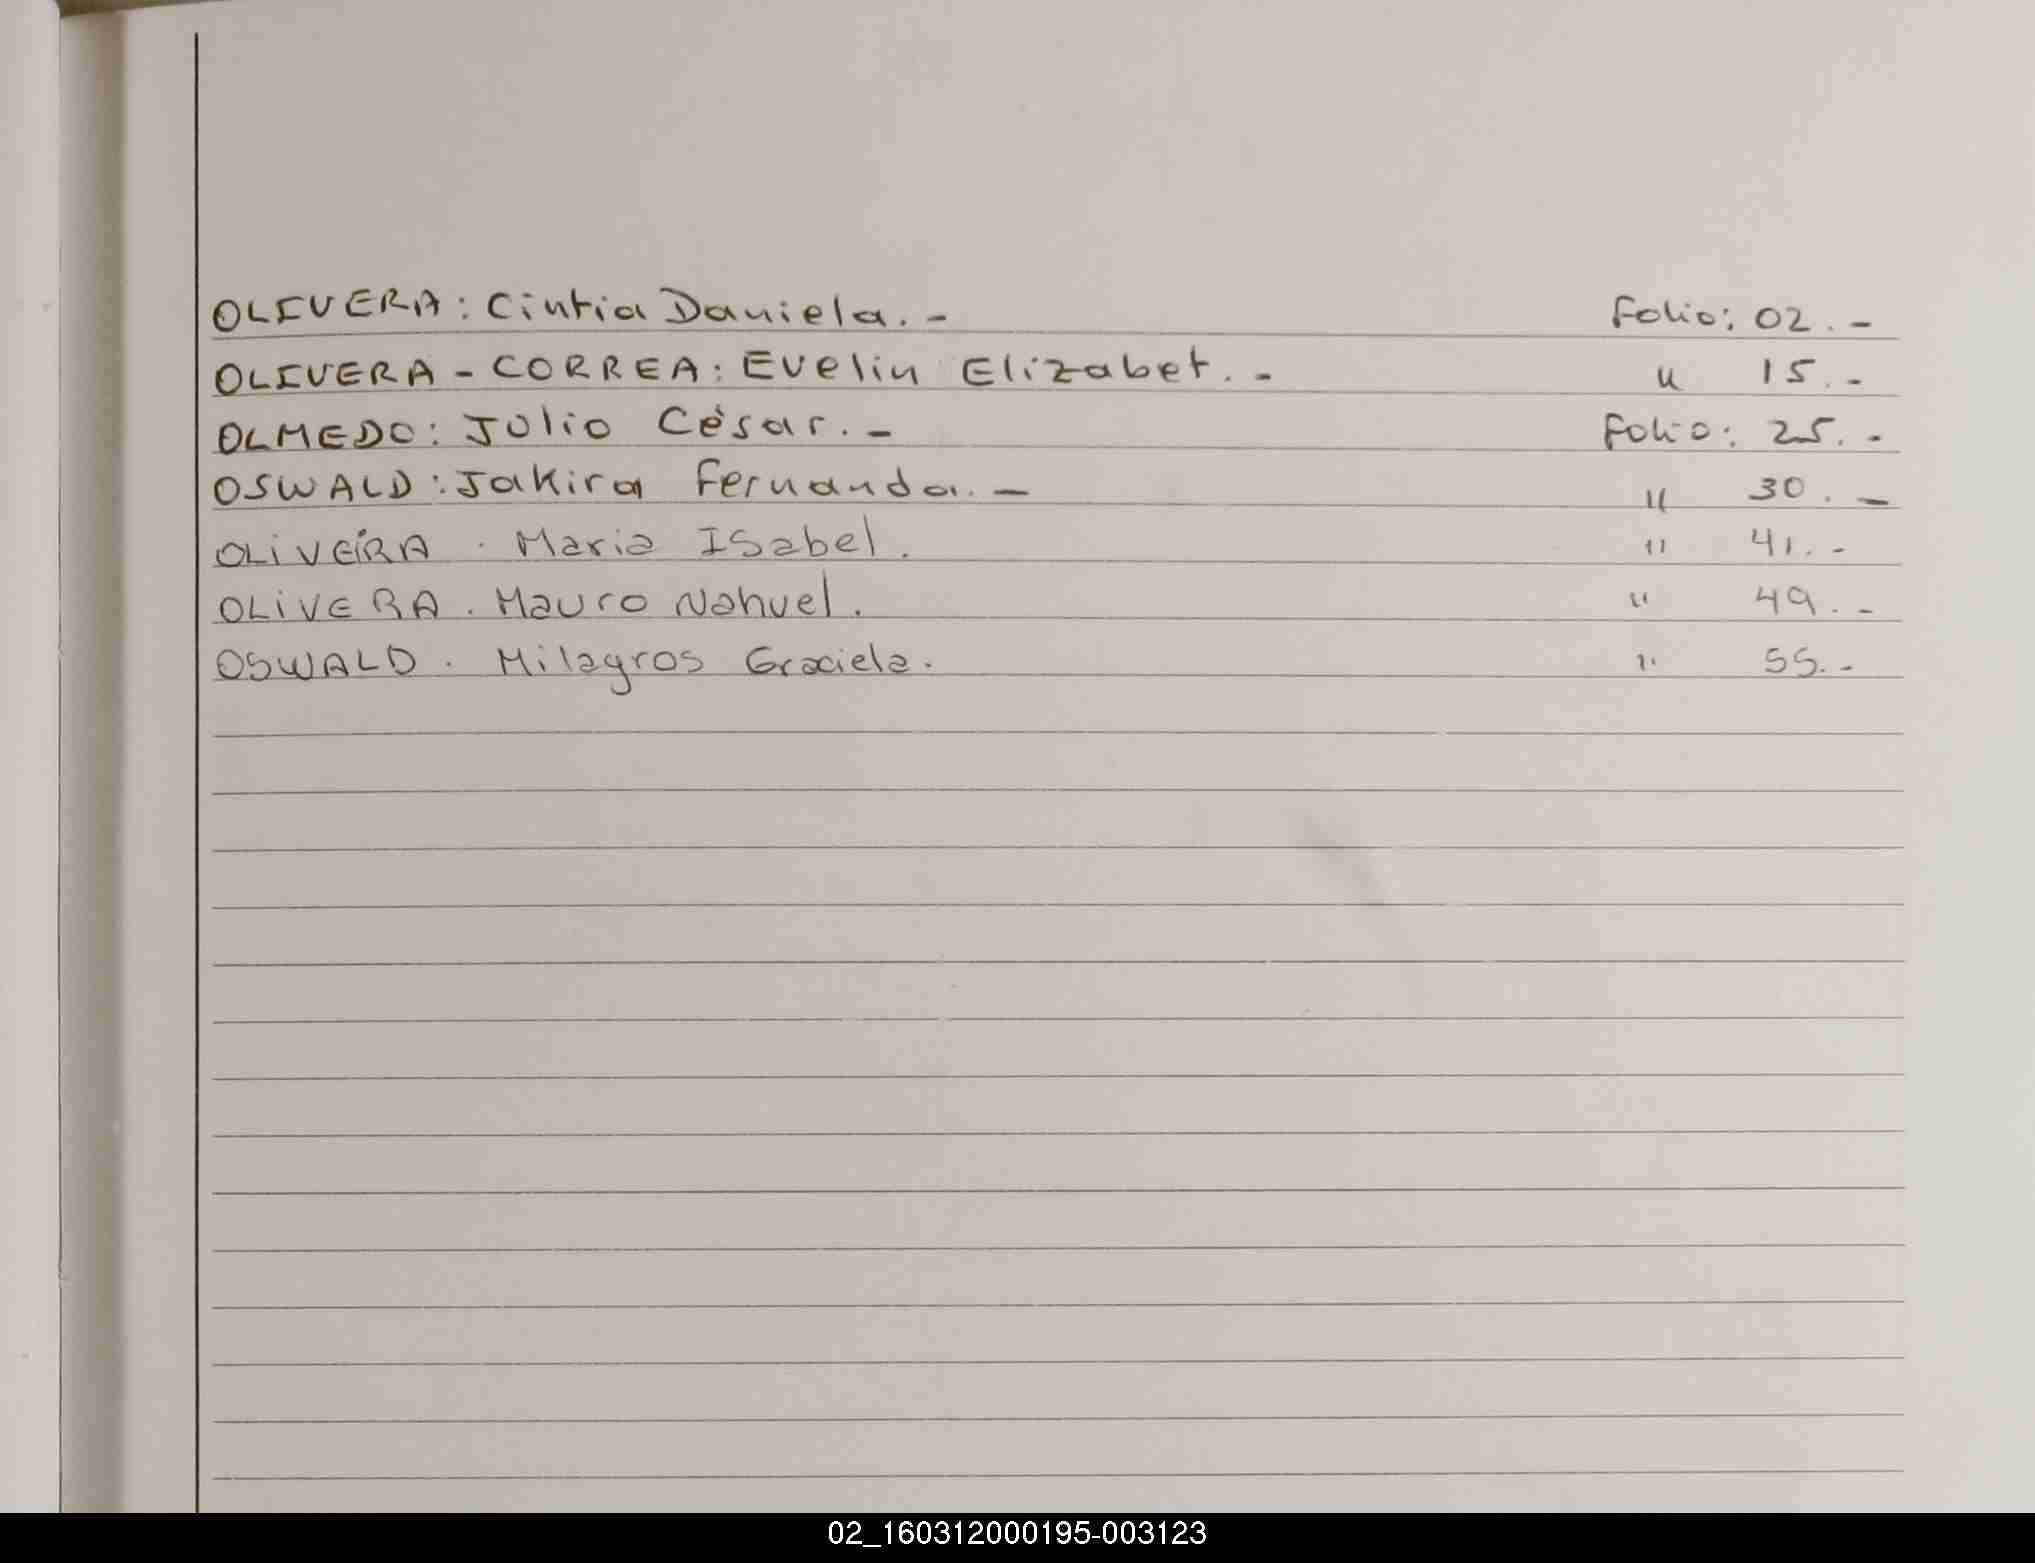 OLIVERA: Cintia Daniela.- Folio: 02.-
OLIVERA - CORREA: Evelin Elizabet.- " 15.-
OLMEDO: Julio César.- Folio: 25.-
OSWALD: Jakira Fernanda.- " 30.-
OLIVEIRA. Maria Isabel. " 41.-
OLIVERA. Mauro Nahuel. " 49.-
OSWALD. Milagros Graciela. " 55.-
02_160312000195-003123